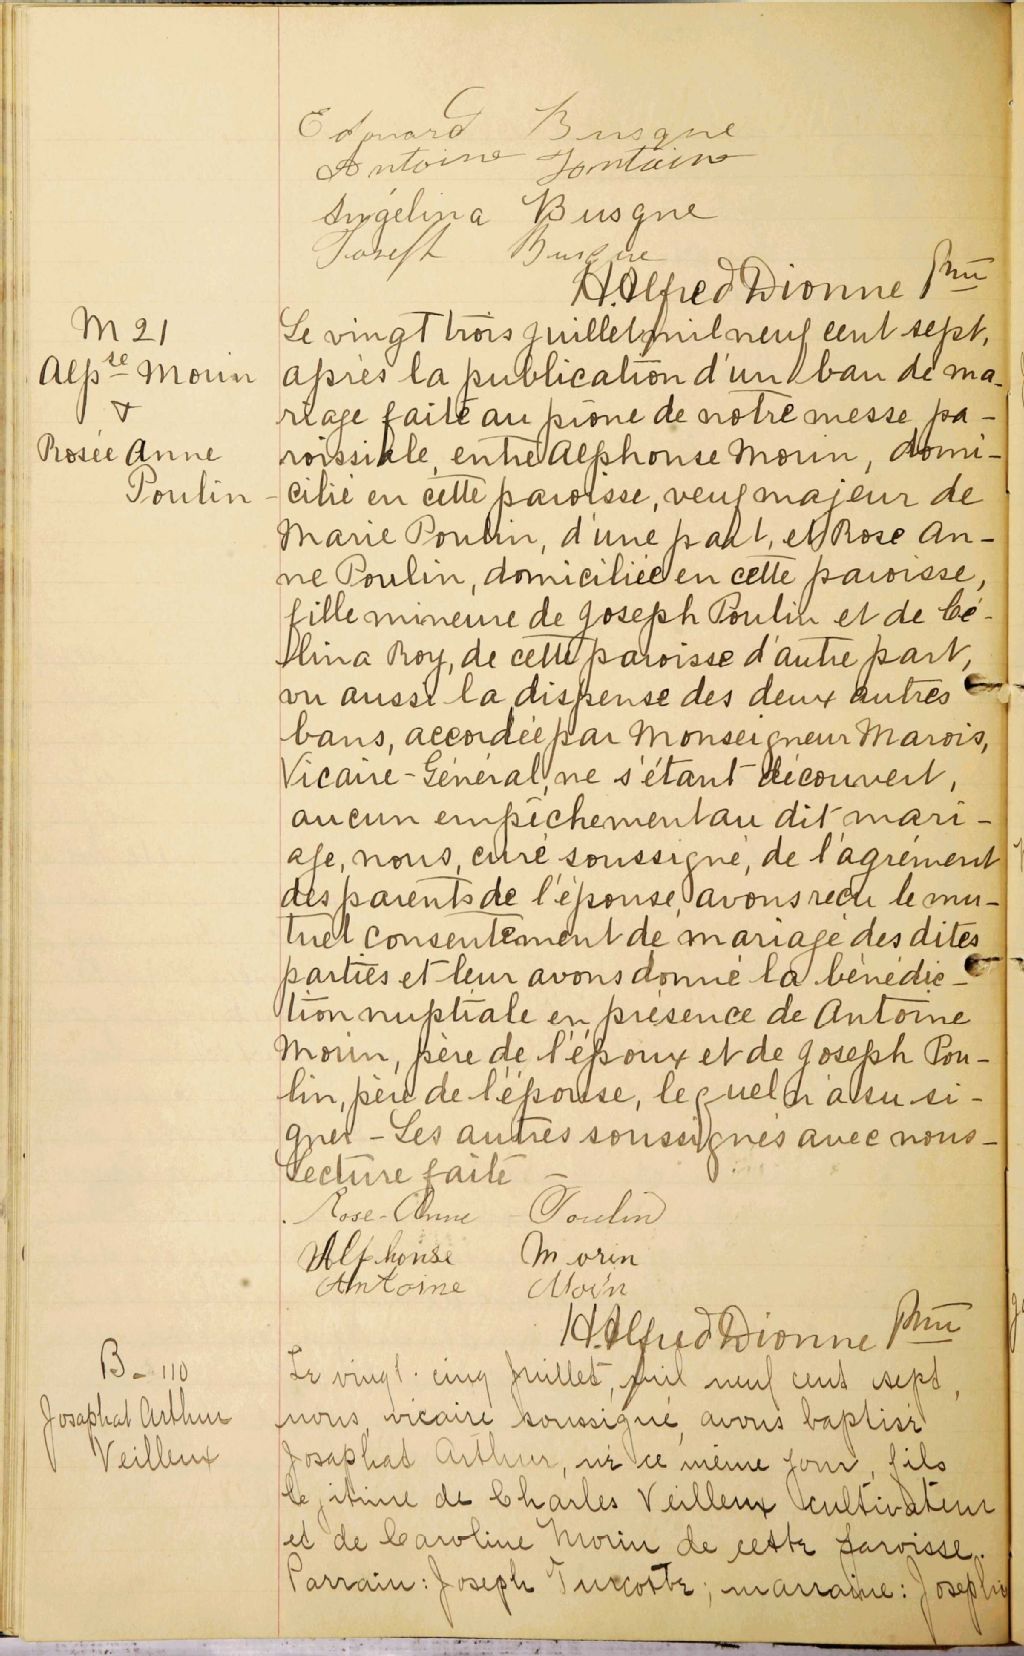 Edouard Busque
Antoine Fontaine
Angélina Busque
Joseph Busque
H. Alfred Dionne Ptre
M 21
Alpse Morin
&
Rosée Anne
Poulin -
Le vingt trois juillet mil neuf cent sept,
après la publication d'un ban de ma-
riage faite au prône de notre messe pa-
roissiale, entre Alphonse Morin, domi-
cilié en cette paroisse, veuf majeur de
Marie Poulin, d'une part, et Rose An-
ne Poulin, domiciliée en cette paroisse,
fille mineure de Joseph Poulin et de Cé-
lina Roy, de cette paroisse d'autre part,
vu aussi la dispense des deux autres
bans, accordée par Monseigneur Marois,
Vicaire-Général, ne s'étant découvert,
aucun empêchement au dit mari-
age, nous, curé soussigné, de l'agrément
des parents de l'épouse, avons reçu le mu-
tuel consentement de mariage des dites
parties et leur avons donné la bénédic-
tion nuptiale en présence de Antoine
Morin, père de l'époux et de Joseph Pou-
lin, père de l'épouse, lequel n'a su si-
gner - Les autres soussignés avec nous -
Lecture faite -
Rose-Anne Poulin
Alphonse Morin
Antoine Morin
H. Alfred Dionne Ptre
B - 110
Josaphat Arthur
Veilleux
Le vingt-cinq Juillet, mil neuf cent sept,
nous, vicaire soussigné, avons baptisé
Josaphat Arthur, né ce même jour, fils
légitime de Charles Veilleux cultivateur
et de Caroline Morin de cette paroisse.
Parrain: Joseph Turcotte; marraine: Joseph